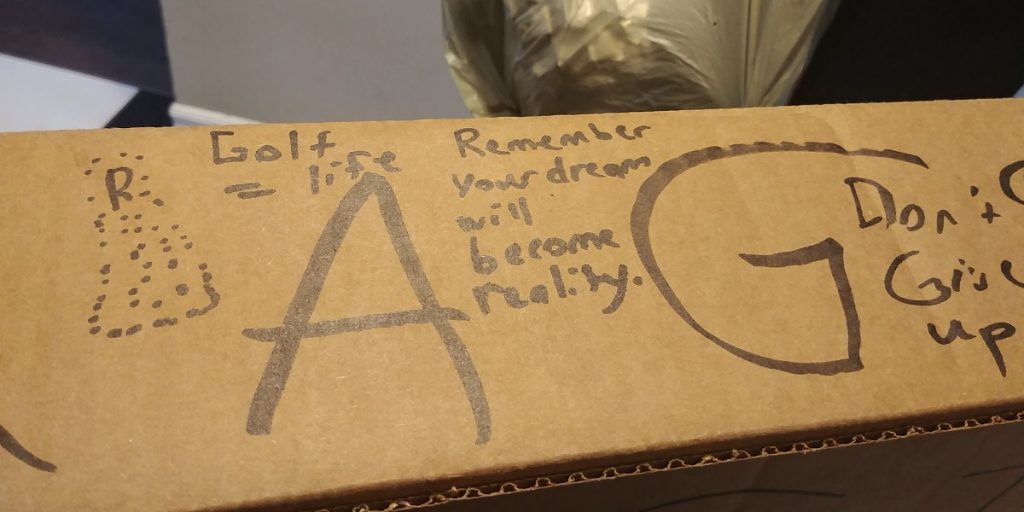 R
Golf
= life
A
Remember
your dream
will
become
reality.
G
Don't
Give
up